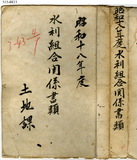 昭和十八年度
水利組合関係書類
土地課
昭和十八年度水利組合関係書類